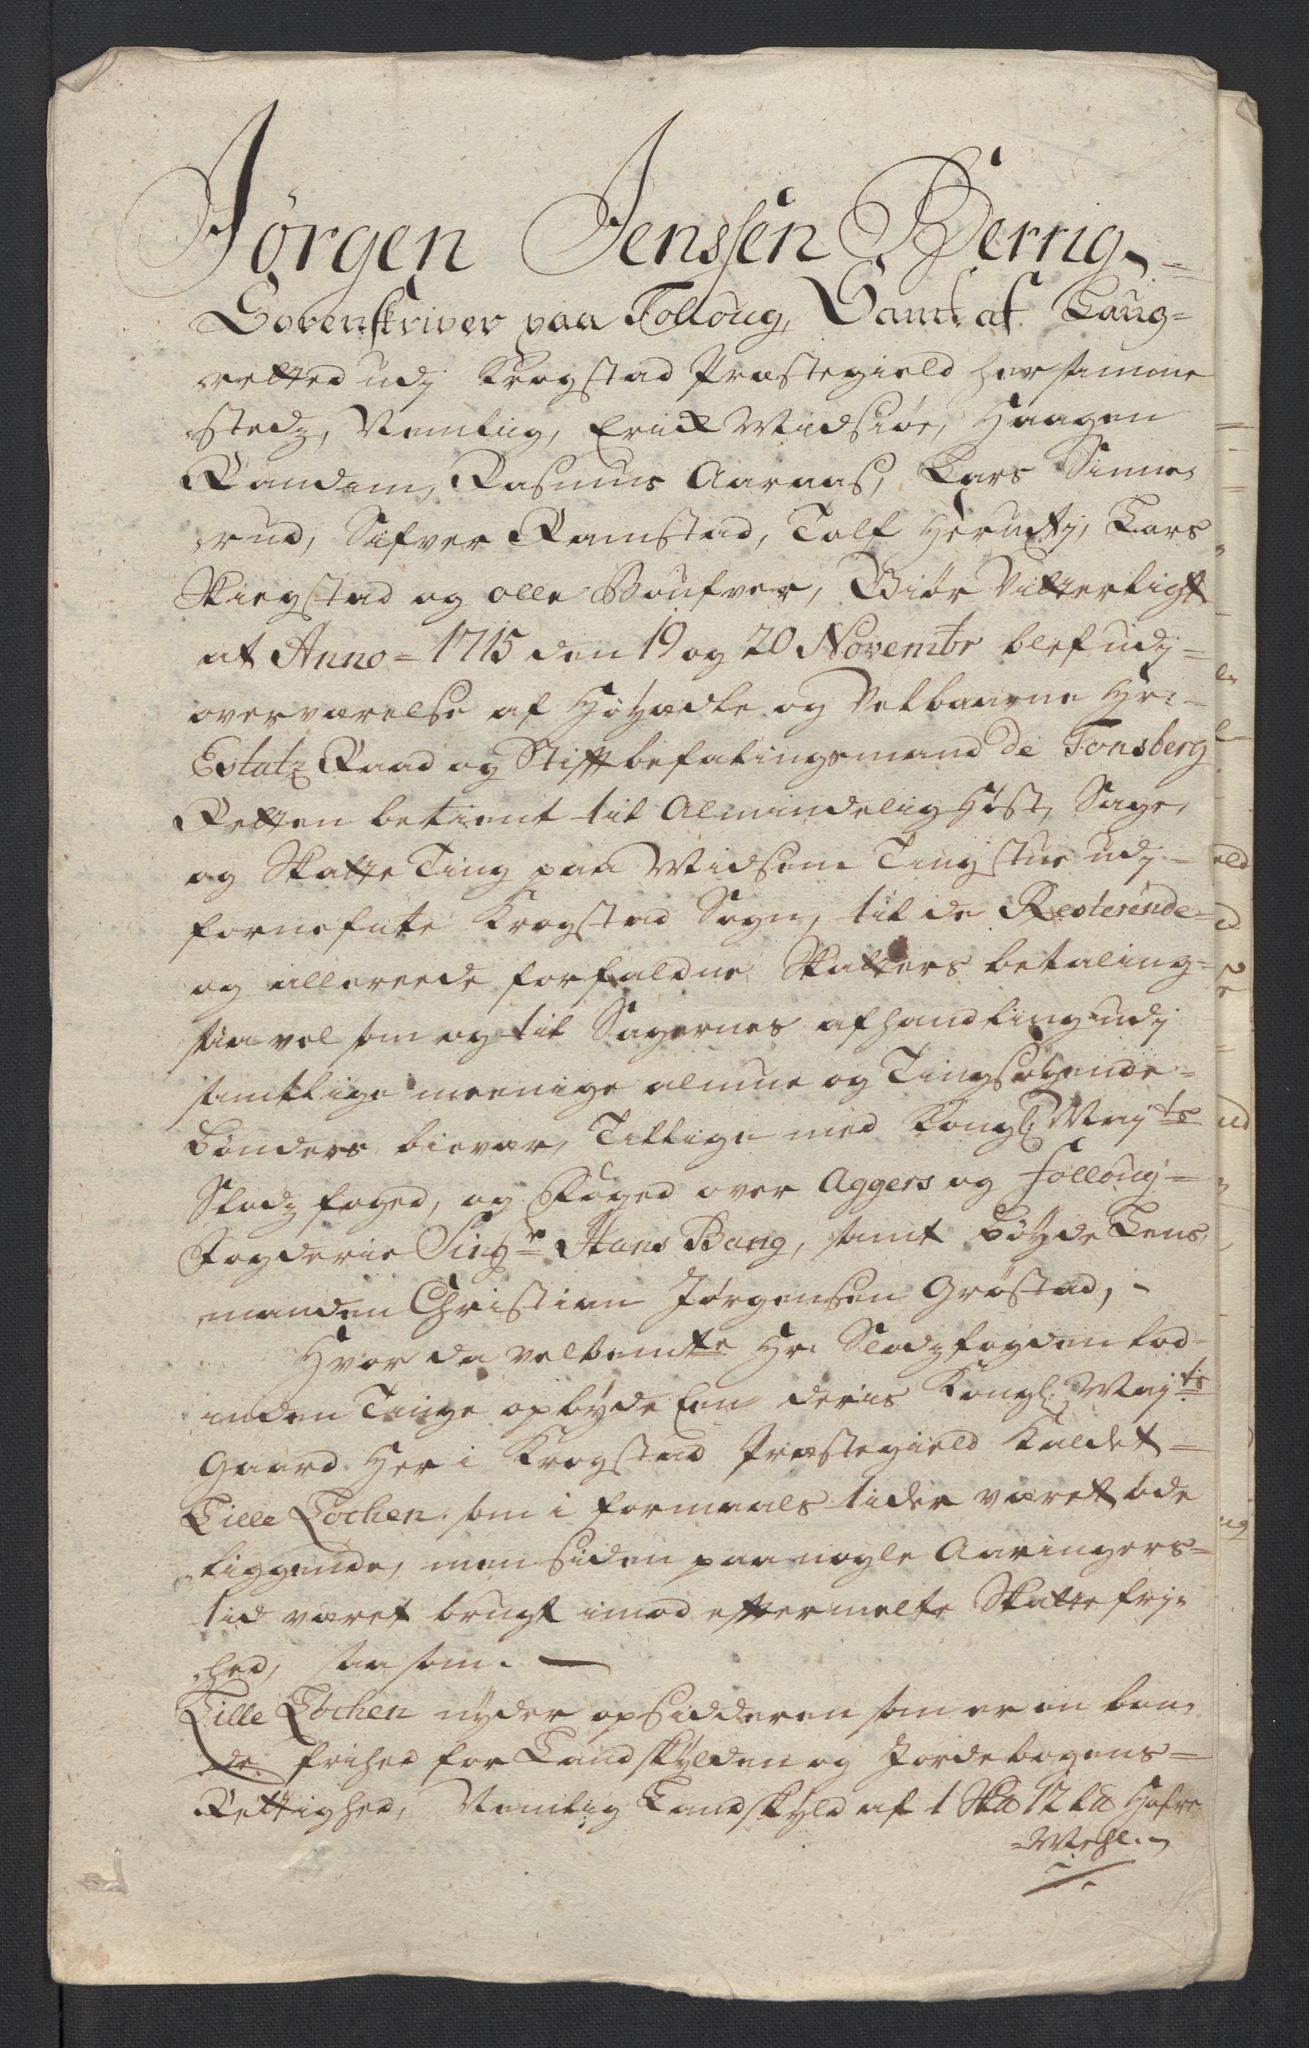 Jørgen Jenssen Berrig
Sorenskriver paa Folloug, Samt af Laug=
retted udj Krogstad Præstegield her samme
stedz, Nemlig, Erick Midsiøe, Haagen
Randem, Rasmus Aaraas, Lars Sinne,
rud, Sifver Ramstad, Tolf Lars
Skiegstad og olle Boufver, Giør Vitterligt
at Anno = 1715 den 19 og 20 Novembr blef udj=
overværelse af Høyædle og Velbaarne Hr:
Estatz Raad og Stiftbefalingsmand de Tonsberg
Retten betient til Almindelig Høst, Sage,
og Skatte Ting paa Midsem Tingstue udj
fornefnte Krogstad Sogn, til de Resterende=
og allereede forfaldne Skatters betaling=
saa vel som og til Sagernes afhandling udj
samtlige meenige almue og Tingsøgende=
bønders bievær, Tillige med Kongl: Mayts
Slodz foged, og Foged over Aggers og Folloug=
Fogderie Singr Hans Bang, samt Bøyde Lens,
manden Christian Jørgensen Grøstad, -
Hvor da velbemte Hr: Slodzfogden lod=
inden Tinge opbyde Een deris Kongl: Mayts
Gaard Her i Krogstad Præstegield Kaldet=
Lille Lochen som i formaals tider været øde
liggende, men siden paa nogle Aaringers=
tid været brugt imod eftermelte Skatte frj=
hed, saa som. —
Lille Lochen nyder opsidderen som er en bon,
de. frihed for Landskylden og Jordebogens=
Rettighed, Nemlig Landskyld af 1 Skd 12 Ld Hafre
=Mehl.